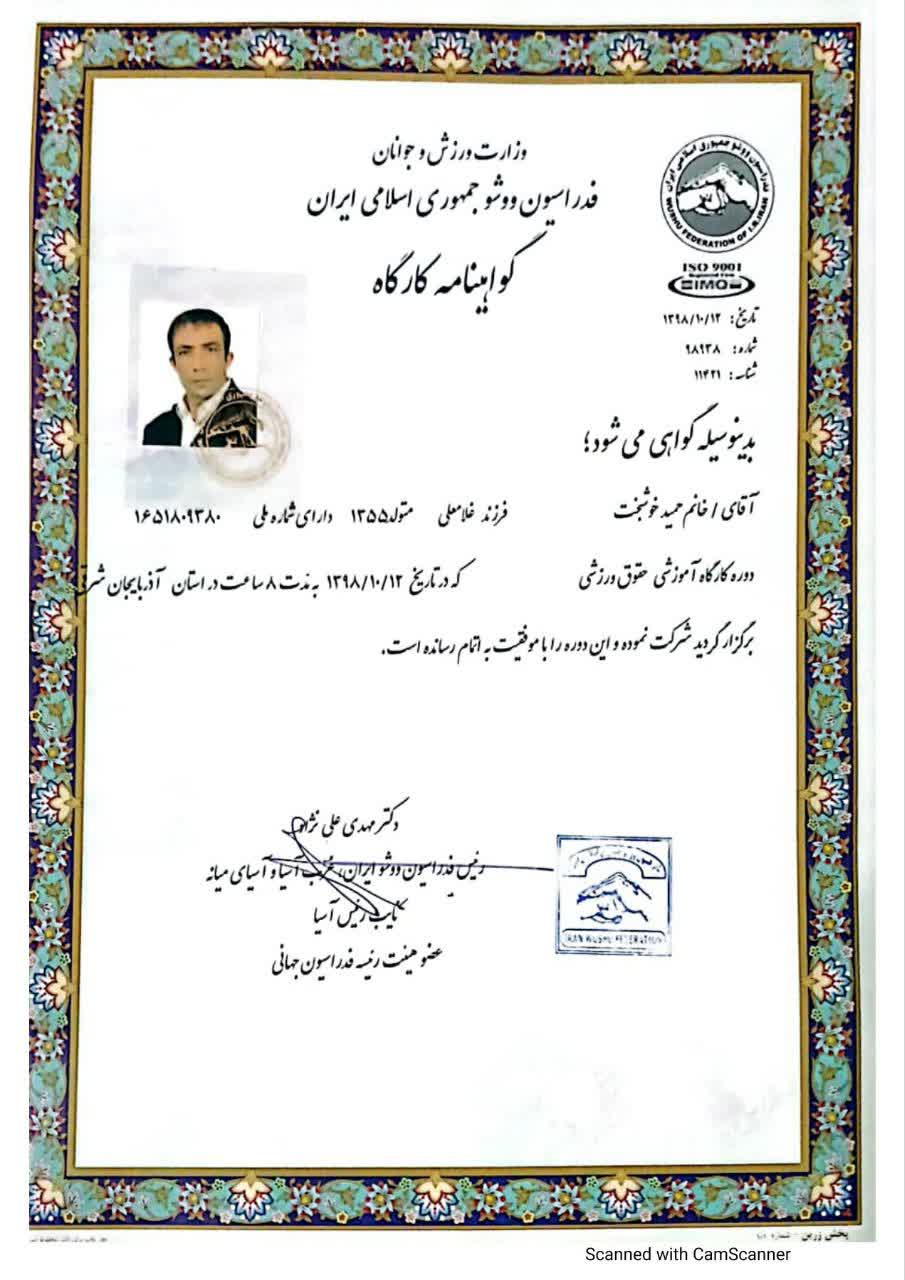 وزارت ورزش و جوانان
فدراسیون ووشو جمهوری اسلامی ایران
گواهینامه کارگاه
فدراسیون ووشو جمهوری اسلامی ایران
WUSHU FEDERATION OF I.R.IRAN
ISO 9001
تاریخ: ۱۳۹۸/۱۰/۱۲
شماره: ۹۸۹۳۸
شناسه: ۱۱۴۲۱
بدینوسیله گواهی می شود؛
آقای / خانم حمید خوشبخت فرزند غلامعلی متولد ۱۳۵۵ دارای شماره ملی ۱۶۵۱۸۰۹۳۸۰
دوره کارگاه آموزشی حقوق ورزشی که در تاریخ ۱۳۹۸/۱۰/۱۲ به مدت ۸ ساعت در استان آذربایجان شرقی
برگزار گردید شرکت نموده و این دوره را با موفقیت به اتمام رسانده است.
دکتر مهدی علی نژاد
رئیس فدراسیون ووشو ایران، غرب آسیا و آسیای میانه
نایب رئیس آسیا
عضو هیئت رئیسه فدراسیون جهانی
IRAN WUSHU FEDERATION
پخش زرین
Scanned with CamScanner